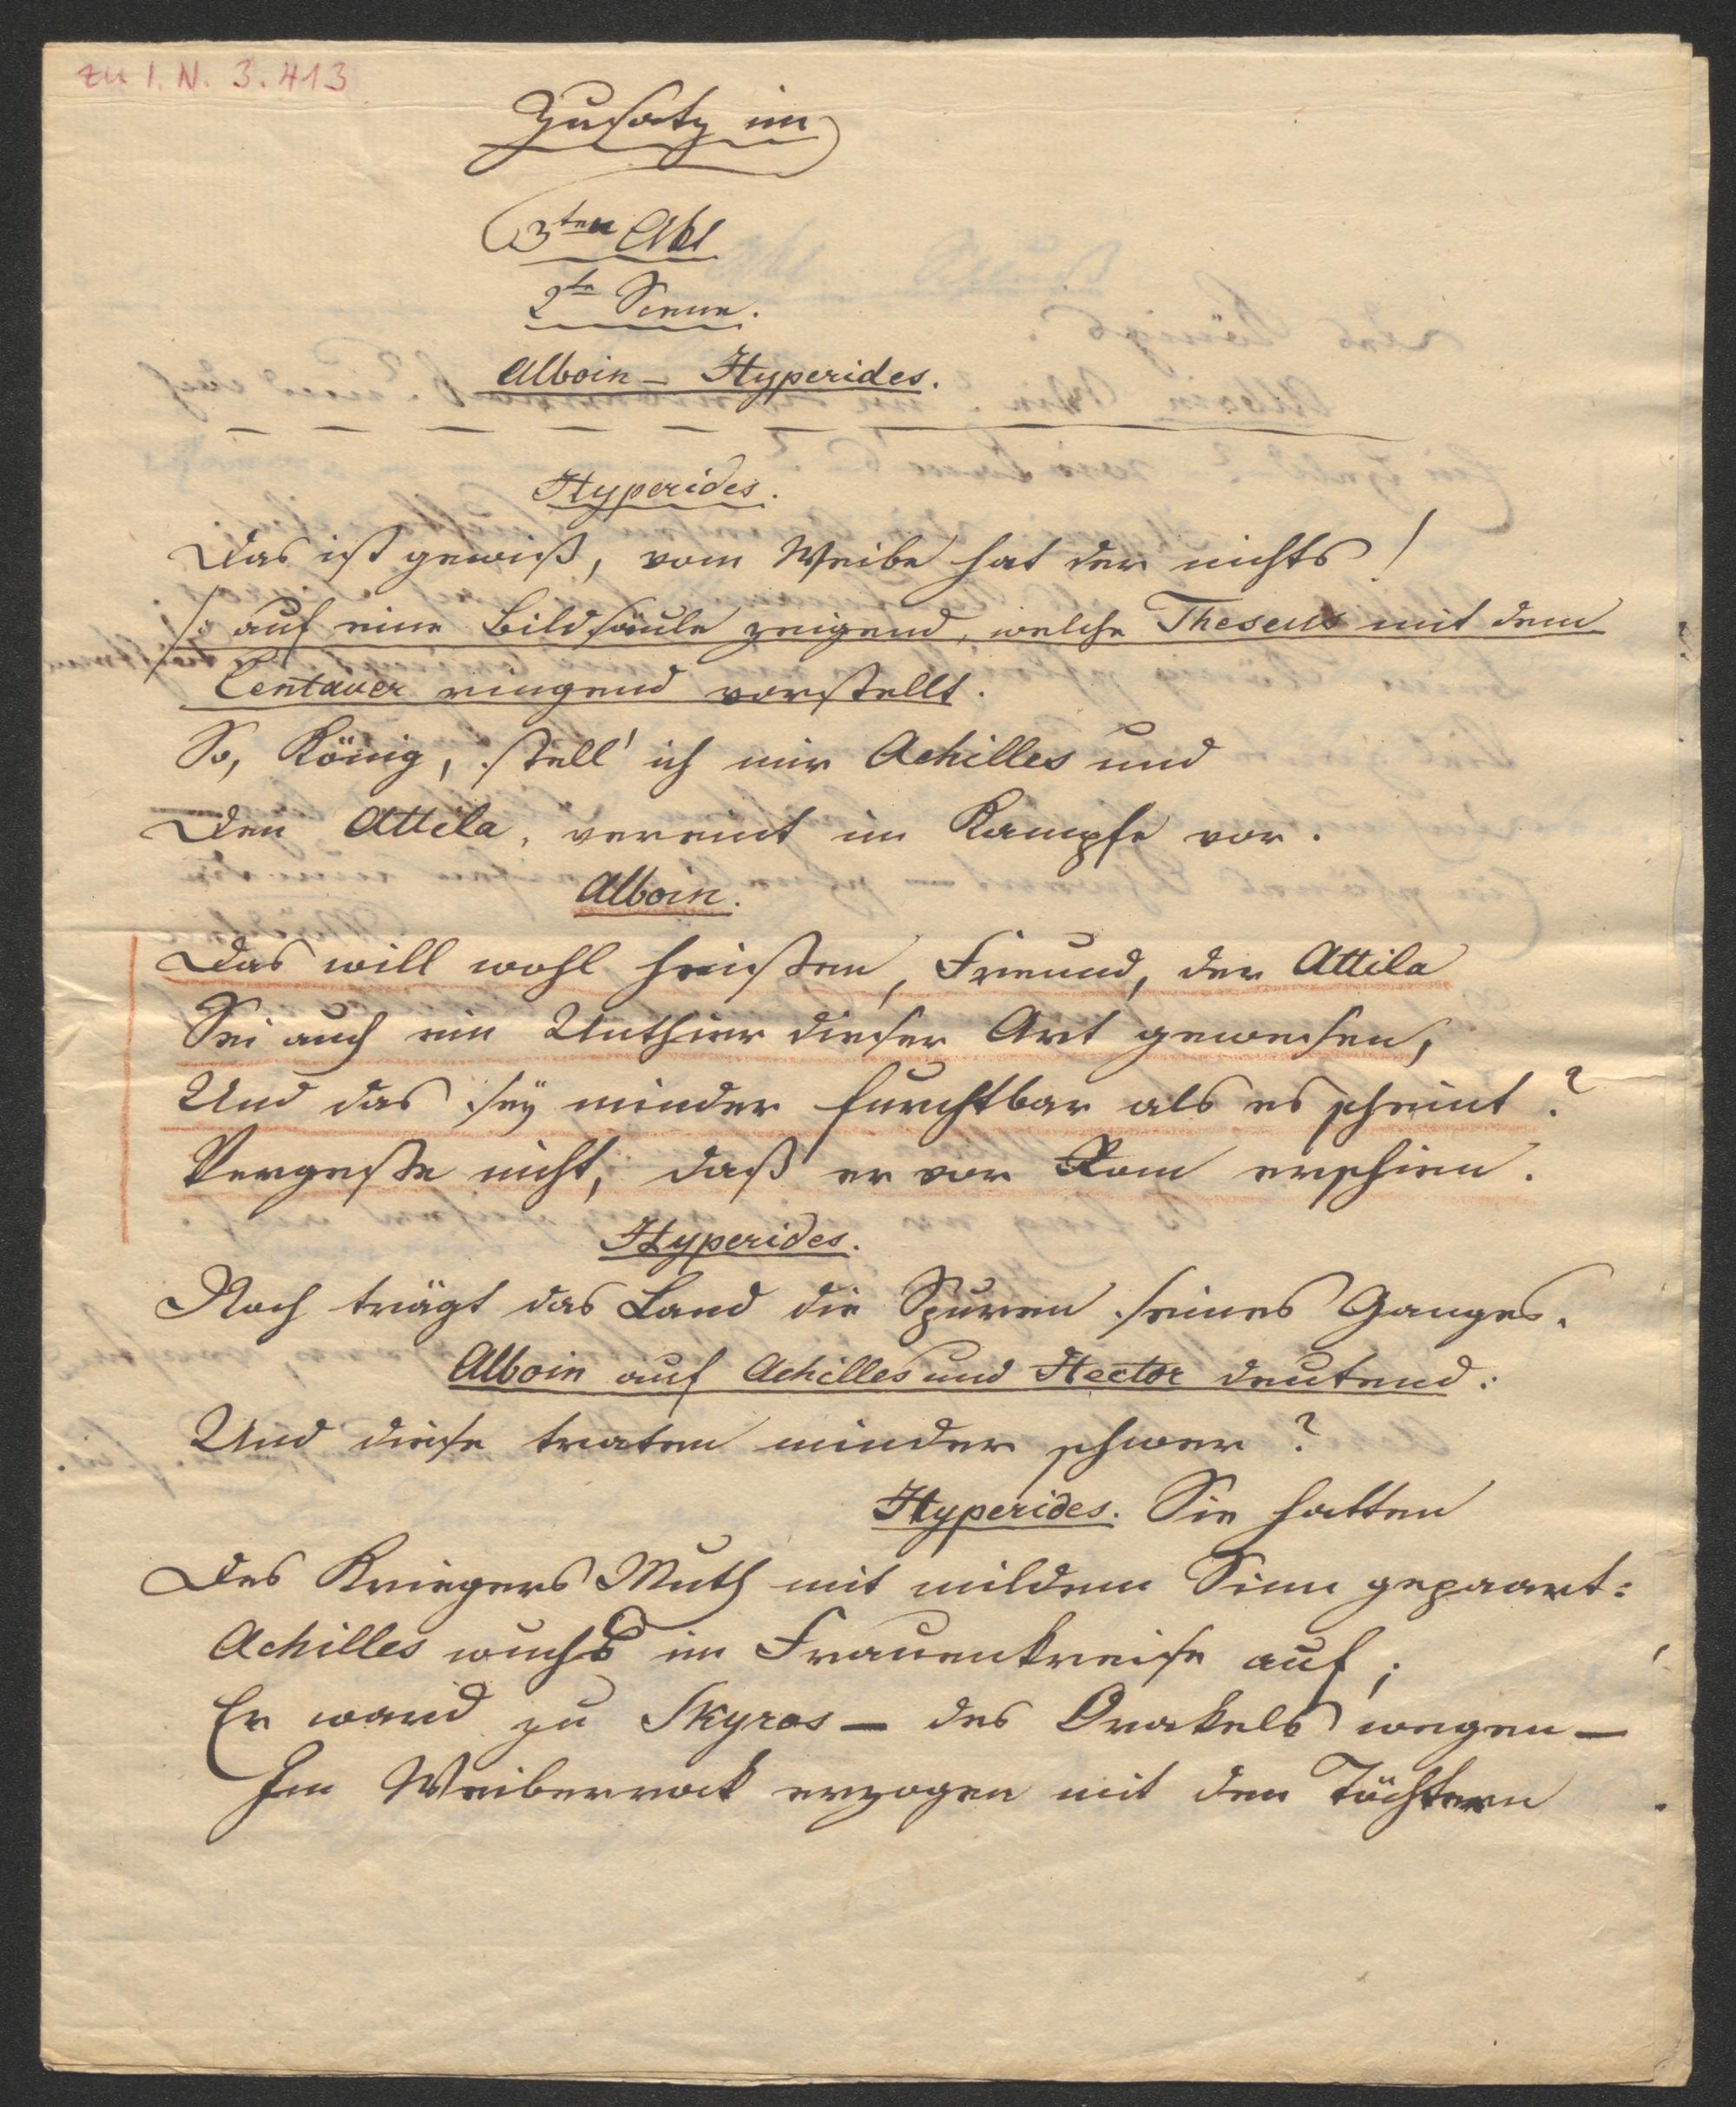 zu I. N. 3.413
Zusatz im
3ten Akt
2te Scene.
Alboin – Hyperides.
Hyperides.
Das ist gewiß, vom Weibe hat der nichts!
/: auf eine Bildsäule zeigend, welche Theseus mit dem
Centauer ringend vorstellt.
So, König, stell' ich mir Achilles und
Den Attila, vereint im Kampfe vor.
Alboin.
Das will wohl heißen, Freund, der Attila
Sei auch ein Unthier dieser Art gewesen,
Und das sey minder furchtbar als es scheint?
Vergesse nicht, daß er vor Rom erschien.
Hyperides.
Noch trägt das Land die Spuren seines Ganges.
Alboin auf Achilles und Hector deutend:
Und diese traten minder schwer?
Hyperides. Sie hatten
Des Kriegers Muth mit mildem Sinn gepaart:
Achilles wuchs im Frauenkreise auf;
Er ward zu Skyros – des Orakels wegen –
Im Weiberrock erzogen mit den Töchtern